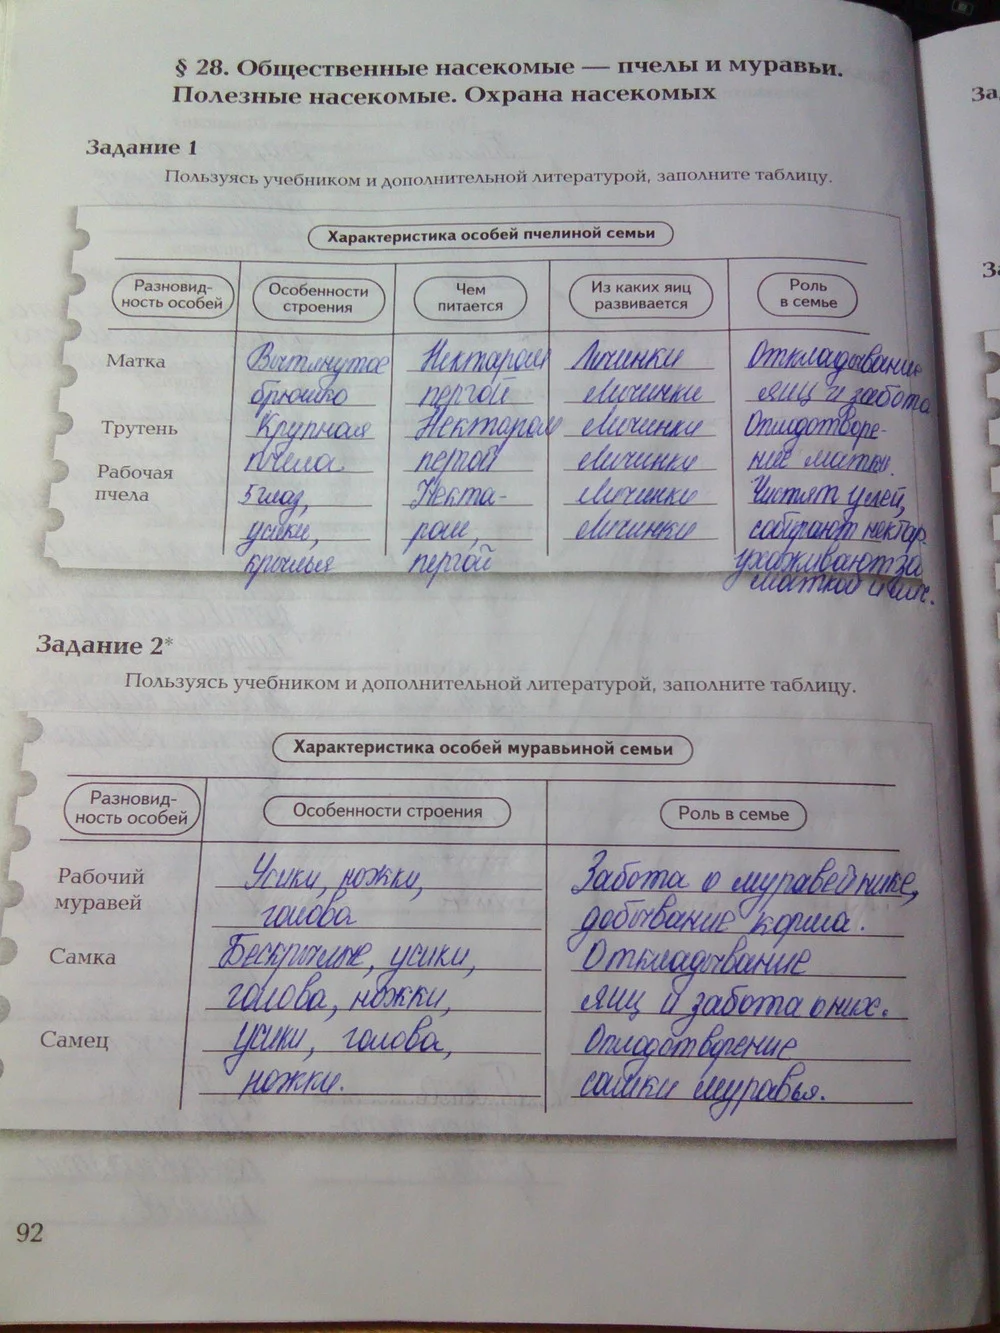 § 28. Общественные насекомые — пчелы и муравьи.
Полезные насекомые. Охрана насекомых
Задание 1
Пользуясь учебником и дополнительной литературой, заполните таблицу.
Характеристика особей пчелиной семьи
Разновид-
ность особей
Особенности
строения
Чем
питается
Из каких яиц
развивается
Роль
в семье
Матка
Вытянутое
Нектаром
Личинки
Откладывание
брюшко
пергой
Личинки
яиц и забота
Трутень
Крупная
Нектаром
Личинки
Оплодотворе-
пчела
пергой
Личинки
ние матки.
Рабочая
пчела
5 глаз,
Некта-
Личинки
Чистят улей,
усики,
ром,
Личинки
собирают нектар
крылья
пергой
ухаживают за
маткой и лич.
Задание 2*
Пользуясь учебником и дополнительной литературой, заполните таблицу.
Характеристика особей муравьиной семьи
Разновид-
ность особей
Особенности строения
Роль в семье
Рабочий
муравей
Усики, ножки,
Забота о муравейнике,
голова
добывание корма.
Самка
Бескрылые, усики,
Откладывание
голова, ножки,
яиц и забота о них.
Самец
усики, голова,
Оплодотворение
ножки.
самки муравья.
92
За